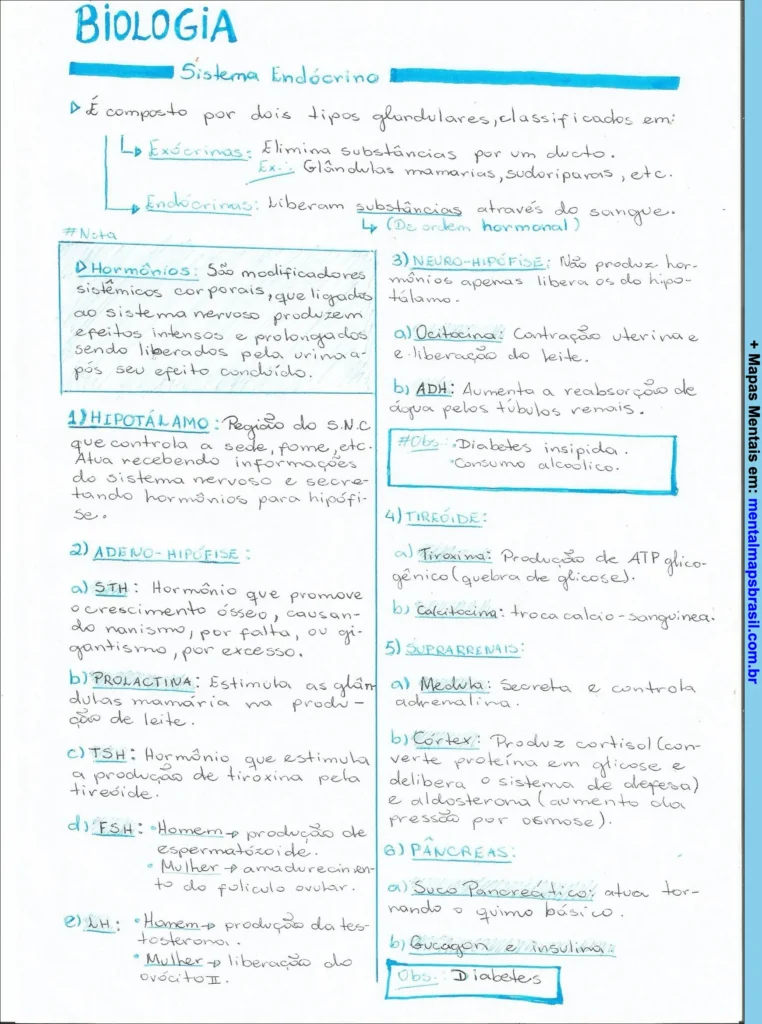 BIOLOGIA
Sistema Endócrino
É composto por dois tipos glandulares, classificados em:
Exócrinas: Elimina substâncias por um ducto.
Ex.: Glândulas mamarias, sudoriparas, etc.
Endócrinas: Liberam substâncias através do sangue.
(De ordem hormonal)
#Nota
Hormônios: São modificadores
sistêmicos corporais, que ligados
ao sistema nervoso produzem
efeitos intensos e prolongados
sendo liberados pela urina a-
pós seu efeito concluído.
1) HIPOTÁLAMO: Região do S.N.C
que controla a sede, fome, etc.
Atua recebendo informações
do sistema nervoso e secre-
tando hormônios para hipófi-
se.
2) ADENO-HIPÓFISE:
a) STH: Hormônio que promove
o crescimento ósseo, causan-
do nanismo, por falta, ou gi-
gantismo, por excesso.
b) PROLACTINA: Estimula as glân
dulas mamária na produ-
ção de leite.
c) TSH: Hormônio que estimula
a produção de tiroxina pela
tireóide.
d) FSH: Homem → produção de
espermatózoide.
Mulher → amadurecimen-
to do folículo ovular.
e) LH: Homem → produção da tes-
tosterona.
Mulher → liberação do
ovócito II.
3) NEURO-HIPÓFISE: Não produz hor-
mônios apenas libera os do hipo-
tálamo.
a) Ocitocina: Contração uterina e
e liberação do leite.
b) ADH: Aumenta a reabsorção de
água pelos túbulos renais.
#Obs: Diabetes insipida.
Consumo alcoólico.
4) TIREÓIDE:
a) Tiroxina: Produção de ATP glico-
gênico (quebra de glicose).
b) Calcitocina: troca calcio-sanguinea.
5) SUPRARRENAIS:
a) Medula: Secreta e controla
adrenalina.
b) Córtex: Produz cortisol (con-
verte proteína em glicose e
delibera o sistema de defesa)
e aldosterona (aumento da
pressão por osmose).
6) PÂNCREAS:
a) Suco Pancreático: atua tor-
nando o quimo básico.
b) Gucagon e insulina:
Obs.: Diabetes
+ Mapas Mentais em: mentalmapsbrasil.com.br